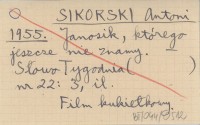 SIKORSKI Antoni
1955. Janosik, którego
jeszcze nie znamy.
Słowo Tygodnia ( )
nr 22: 3, il.
Film kukiełkowy.